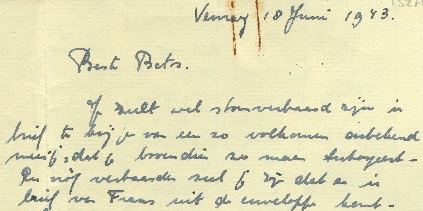 Venray 18 Juni 1943.
Beste Bets.
Je zult wel stomverbaasd zijn 'n
brief te krijgen van een zo volkomen onbekend
meisje, dat je bovendien zo maar tutoyeert.
En nóg verbaasder zul je zijn dat er 'n
brief van Frans uit de enveloppe komt.